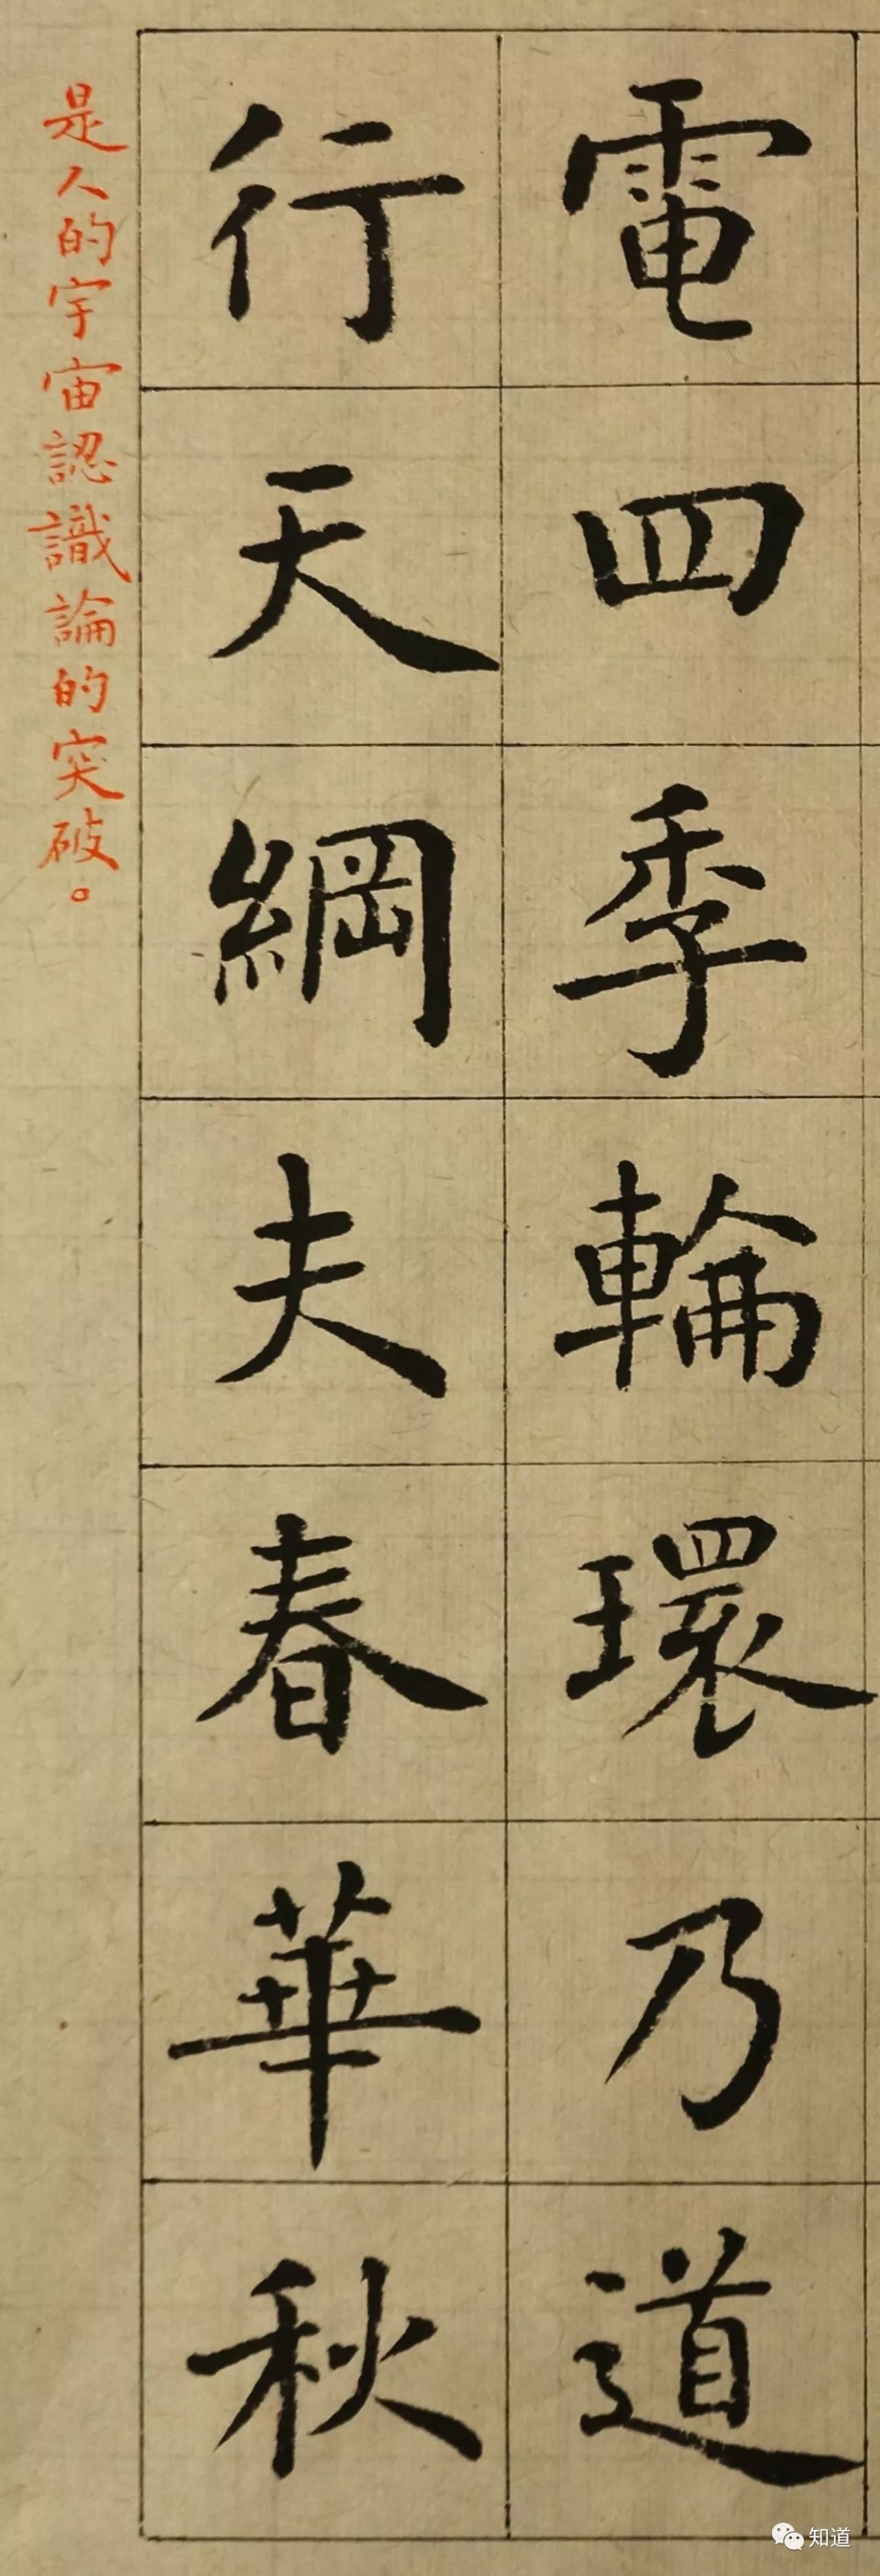 電四季輪環乃道
行天綱夫春華秋
是人的宇宙認識論的突破。
知道